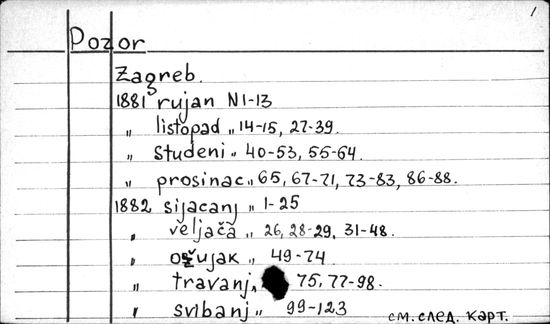 1
Pozor
Zagreb.
1881 rujan N 1-13
„ listopad „ 14-15, 27-39.
„ studeni „ 40-53, 55-64.
„ prosinac „ 65, 67-71, 73-83, 86-88.
1882 sijacanj „ 1-25
„ veljača „ 26, 28-29, 31-48.
„ ožujak „ 49-74
„ travanj „ 75, 77-98.
„ svibanj „ 99-123
см. след. карт.